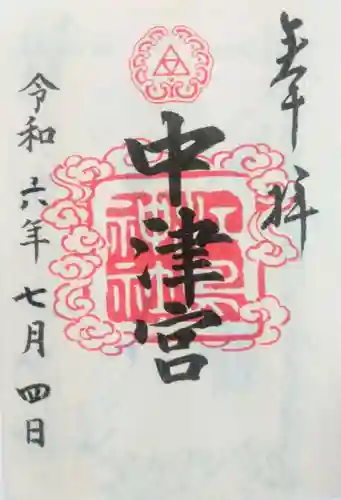 奉拝
中津宮
令和六年七月四日